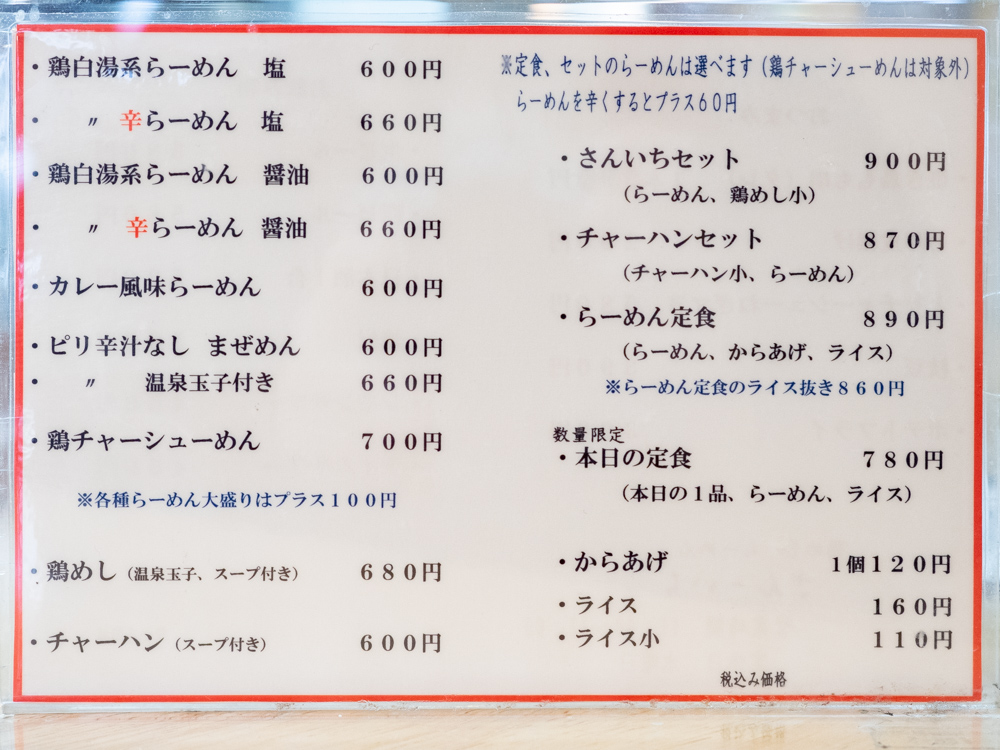 ・鶏白湯系らーめん 塩 ６００円
・ 〃 辛らーめん 塩 ６６０円
・鶏白湯系らーめん 醤油 ６００円
・ 〃 辛らーめん 醤油 ６６０円
・カレー風味らーめん ６００円
・ピリ辛汁なし まぜめん ６００円
・ 〃 温泉玉子付き ６６０円
・鶏チャーシューめん ７００円
※各種らーめん大盛りはプラス１００円
・鶏めし（温泉玉子、スープ付き） ６８０円
・チャーハン（スープ付き） ６００円
※定食、セットのらーめんは選べます（鶏チャーシューめんは対象外）
らーめんを辛くするとプラス６０円
・さんいちセット ９００円
（らーめん、鶏めし小）
・チャーハンセット ８７０円
（チャーハン小、らーめん）
・らーめん定食 ８９０円
（らーめん、からあげ、ライス）
※らーめん定食のライス抜き８６０円
数量限定
・本日の定食 ７８０円
（本日の１品、らーめん、ライス）
・からあげ １個１２０円
・ライス １６０円
・ライス小 １１０円
税込み価格